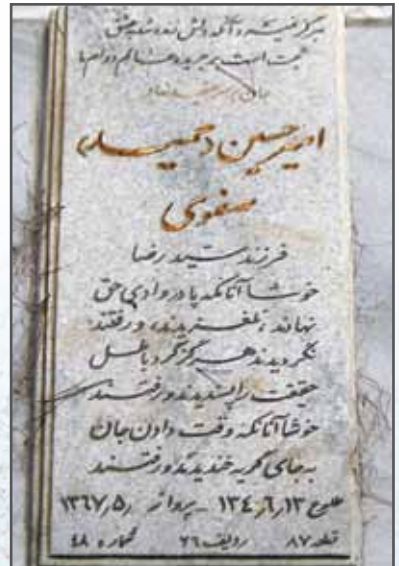 هرگز نمیرد آنکه دلش زنده شد به عشق
ثبت است بر جریده عالم دوام ما
امیرحسین (حمید)
صفوی
فرزند سید رضا
خوشا آنانکه پا در وادی حق
نهادند، نلغزیدند و رفتند
نگردیدند هرگز گرد باطل
حقیقت را پسندیدند و رفتند
خوشا آنانکه وقت دادن جان
به جای گریه خندیدند و رفتند
طلوع ۱۳٤۰٫٦٫۱۳ - پرواز ۱۳٦۷٫٥٫
قطعه ۸۷ ردیف ۲٦ شماره ٤۸